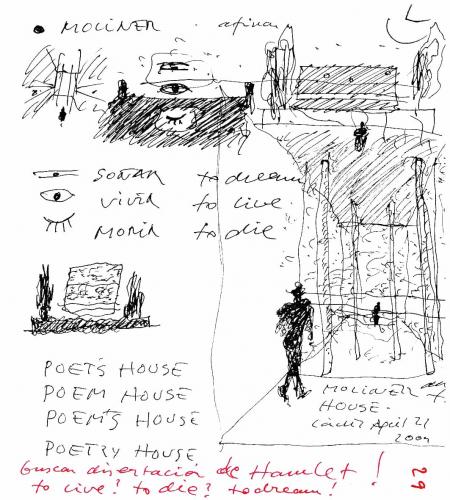 MOLINER
SOÑAR to dream
VIVIR to live
MORIR to die
POET'S HOUSE
POEM HOUSE
POEM'S HOUSE
POETRY HOUSE
MOLINER
HOUSE.
April 21
buscar disertación de Hamlet!
to live? to die? to dream!
29